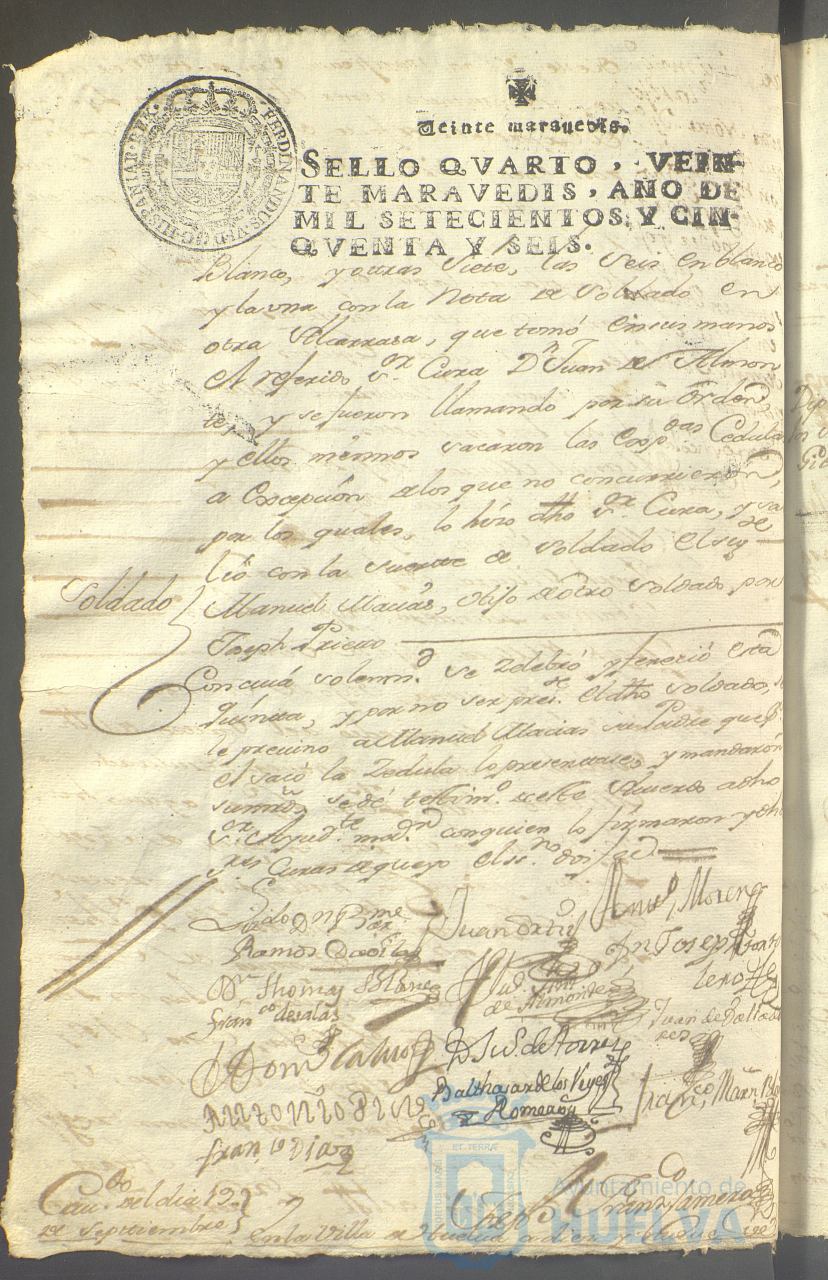 FERDINANDUS VI D G HISPANIAR REX
Veinte maravedis.
SELLO QVARTO, VEIN-
TE MARAVEDIS, AÑO DE
MIL SETECIENTOS Y CIN-
QVENTA Y SEIS.
Blanco, y otras siete, las seis en blanco
y la una con la Nota de Soldado en
otra Alcarrasa, que tomó en sus manos
el referido Sor. Cura Dn. Juan de Almon
te, y se fueron llamando por su orden,
y ellos mismos sacaron las Cedulas
a Excepcion de los que no concurrieron,
por los quales, lo hizo dho Sor. Cura, y sa
lió con la suerte de Soldado el sigte
Soldado
Manuel Macias, hijo de otro Soldado por
Joseph Prieto
Con cuia solemnd. se zelebró y fenezió esta
quinta, y por no ser prete. el dho soldado, se
le previno a Manuel Macias su Padre que
el sacó la Zedula lo presentase, y mandaron
sus mrds. se dé testimo. de este Acuerdo a dho
Sor. Ayudte. con quien lo firmaron y dhos
Sres Curas de que yo el ssno. doi fee
Ramos
Juan Ortiz
Moreno
Dn Joseph
Dr. Thomas Blanco
de Almonte
Franco. de Salas
Juan de
Domo. Calvo
D Jus. de Torres
Antonio
Balthasar de los Reyes
Romero
Franco. Diaz
Cavo. del dia 12
de Septiembre
En la Villa de Huelva
Ayuntamiento de
HUELVA